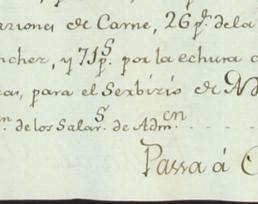 rriones de Carne, 26 p.s de la
nchez, y 71 p.s por la echura d
cas, para el Serbizio de
n. de los Salar.s de Adm.cn
Passa á